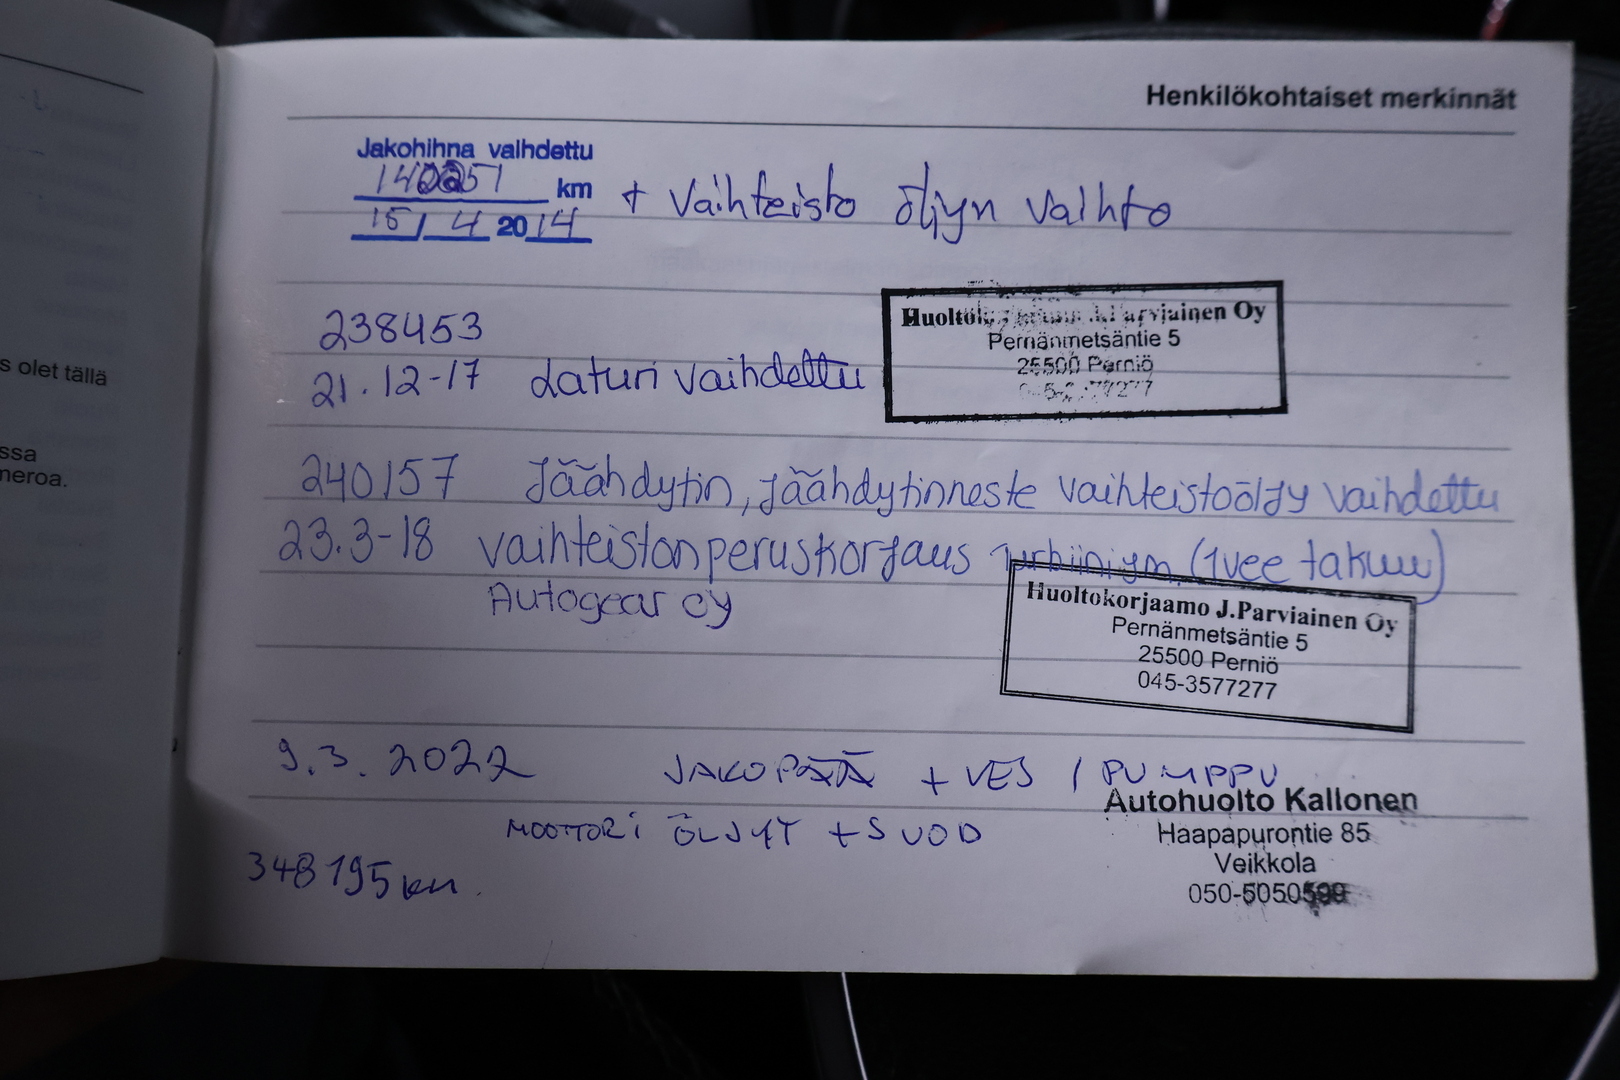 Henkilökohtaiset merkinnät
Jakohihna vaihdettu
km + Vaihteisto öljyn vaihto
15/4 2014
Parviainen Oy
Pernänmetsäntie 5
238453
25500 Perniö
21.12-17 Laturi vaihdettu
240157 Jäähdytin, jäähdytinneste vaihteistoöljy vaihdettu
23.3-18 vaihteistonperuskorjaus (1vee takuu)
Autogear oy
Huoltokorjaamo J.Parviainen Oy
Pernänmetsäntie 5
25500 Perniö
045-3577277
9.3.2022 JAKOPÄÄ + VESI PUMPPU
Autohuolto Kallonen
MOOTTORI ÖLJYT + SUOD
Haapapurontie 85
Veikkola
348195 km.
s olet tällä
ssa
neroa.